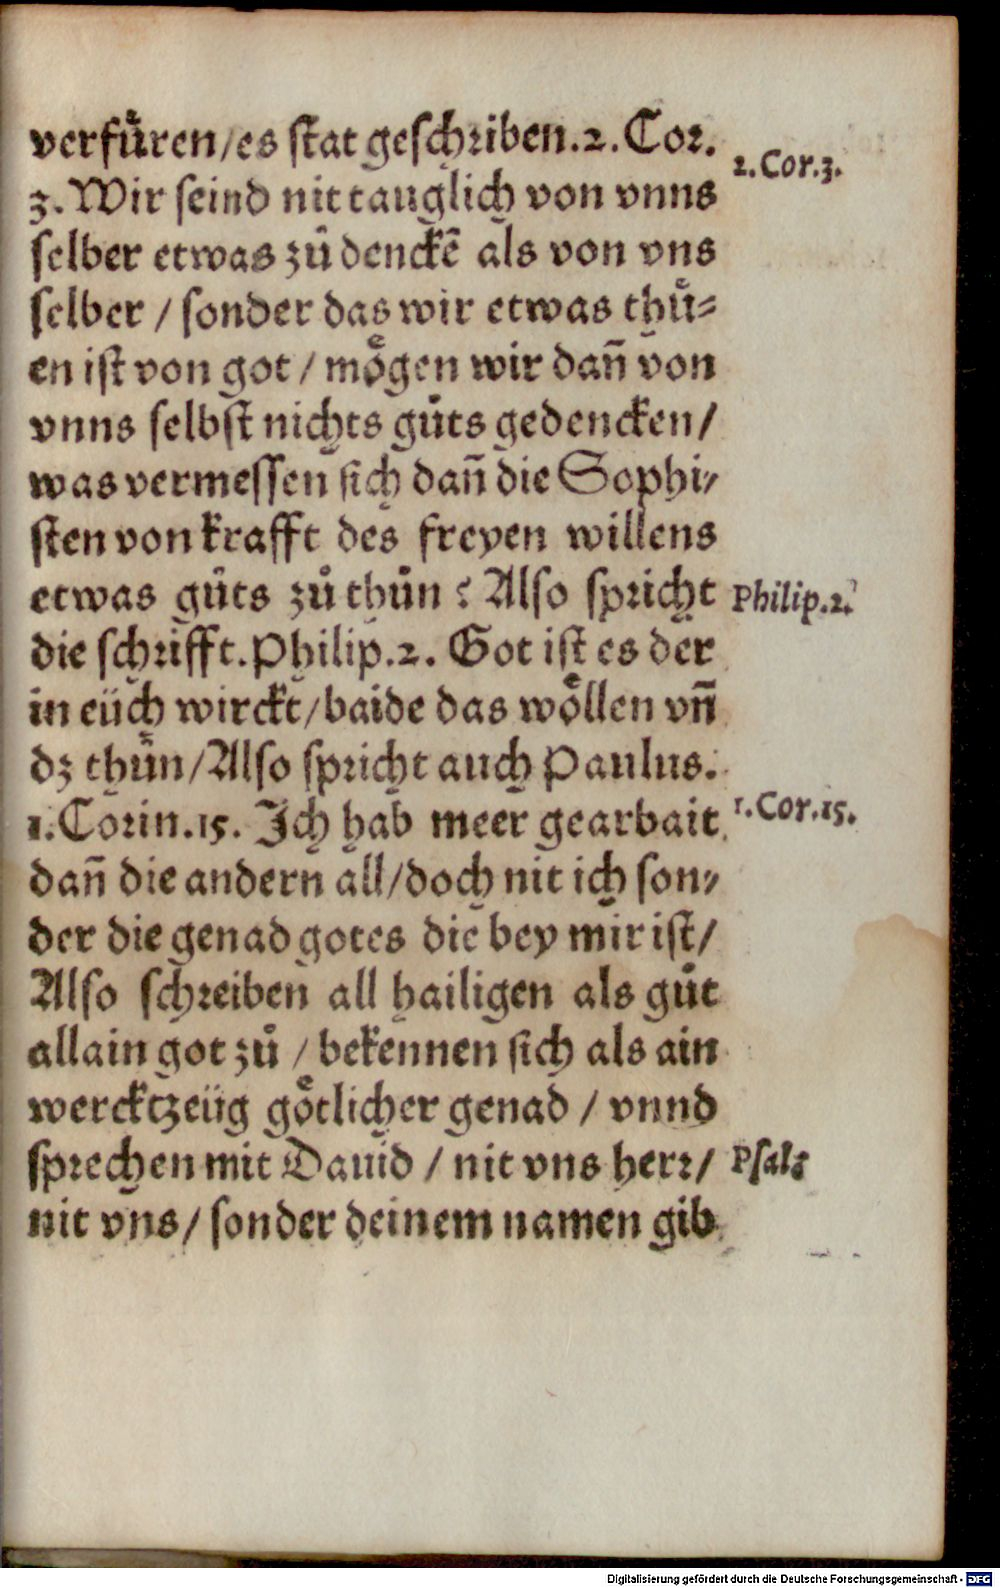 verfuͤren/es ſtat geſchꝛiben.2.Coꝛ.
2.Cor.3.
3.Wir ſeind nit tauglich von vnns
ſelber etwas zuͦ denckē als von vns
ſelber / ſonder das wir etwas thuͤ⸗
en iſt von got / moͤgen wir dañ von
vnns ſelbſt nichts guͦts gedencken/
was vermeſſen ſich dañ die Sophi⸗
ſten von krafft des freyen willens
etwas guͦts zuͦ thuͦn ? Alſo ſpꝛicht
Philip.2.
die ſchꝛifft.Philip.2. Got iſt es der
in eüch wirckt/baide das woͤllen vñ
dz thuͦn/Alſo ſpꝛicht auch Paulus.
1.Coꝛin.15. Ich hab meer gearbait
1.Cor.15.
dañ die andern all/doch nit ich ſon⸗
der die genad gotes die bey mir iſt/
Alſo ſchꝛeiben all hailigen als guͦt
allain got zuͦ / bekennen ſich als ain
wercktzeüg goͤtlicher genad / vnnd
ſpꝛechen mit Dauid / nit vns herꝛ/
Pſal:
nit vns/ ſonder deinem namen gib
Digitalisierung gefördert durch die Deutsche Forschungsgemeinschaft - DFG